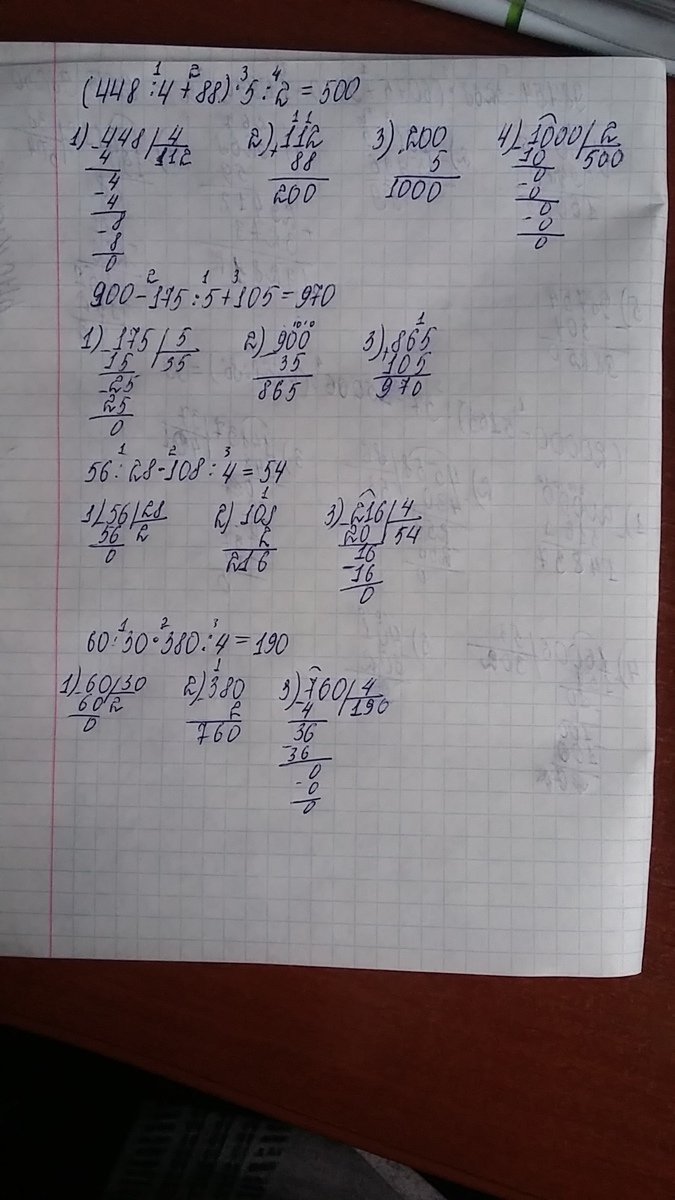 (448 : 4 + 88) · 5 : 2 = 500
1 2 3 4
1) 448 | 4 2) 112 3) 200 4) 1000 | 2
4 112 + 88 · 5 10 500
4 200 1000 0
- 4 - 0
8 0
- 8 - 0
0 0
900 - 175 : 5 + 105 = 970
2 1 3
1) - 175 | 5 2) - 900 3) + 865
15 35 35 105
- 25 865 970
25
0
56 : 28 · 108 : 4 = 54
1 2 3
1) - 56 | 28 2) · 108 3) - 216 | 4
56 2 2 20 54
0 216 16
- 16
0
60 : 30 · 380 : 4 = 190
1 2 3
1) - 60 | 30 2) · 380 3) - 760 | 4
60 2 2 4 190
0 760 36
- 36
0
- 0
0